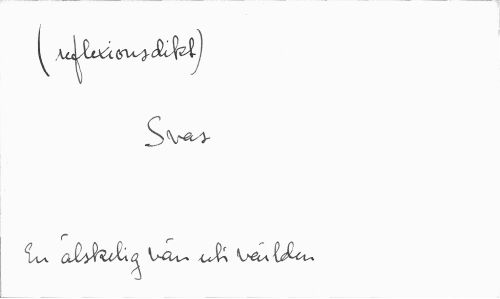 (reflexionsdikt)
Svas
En älskelig vän uti världen